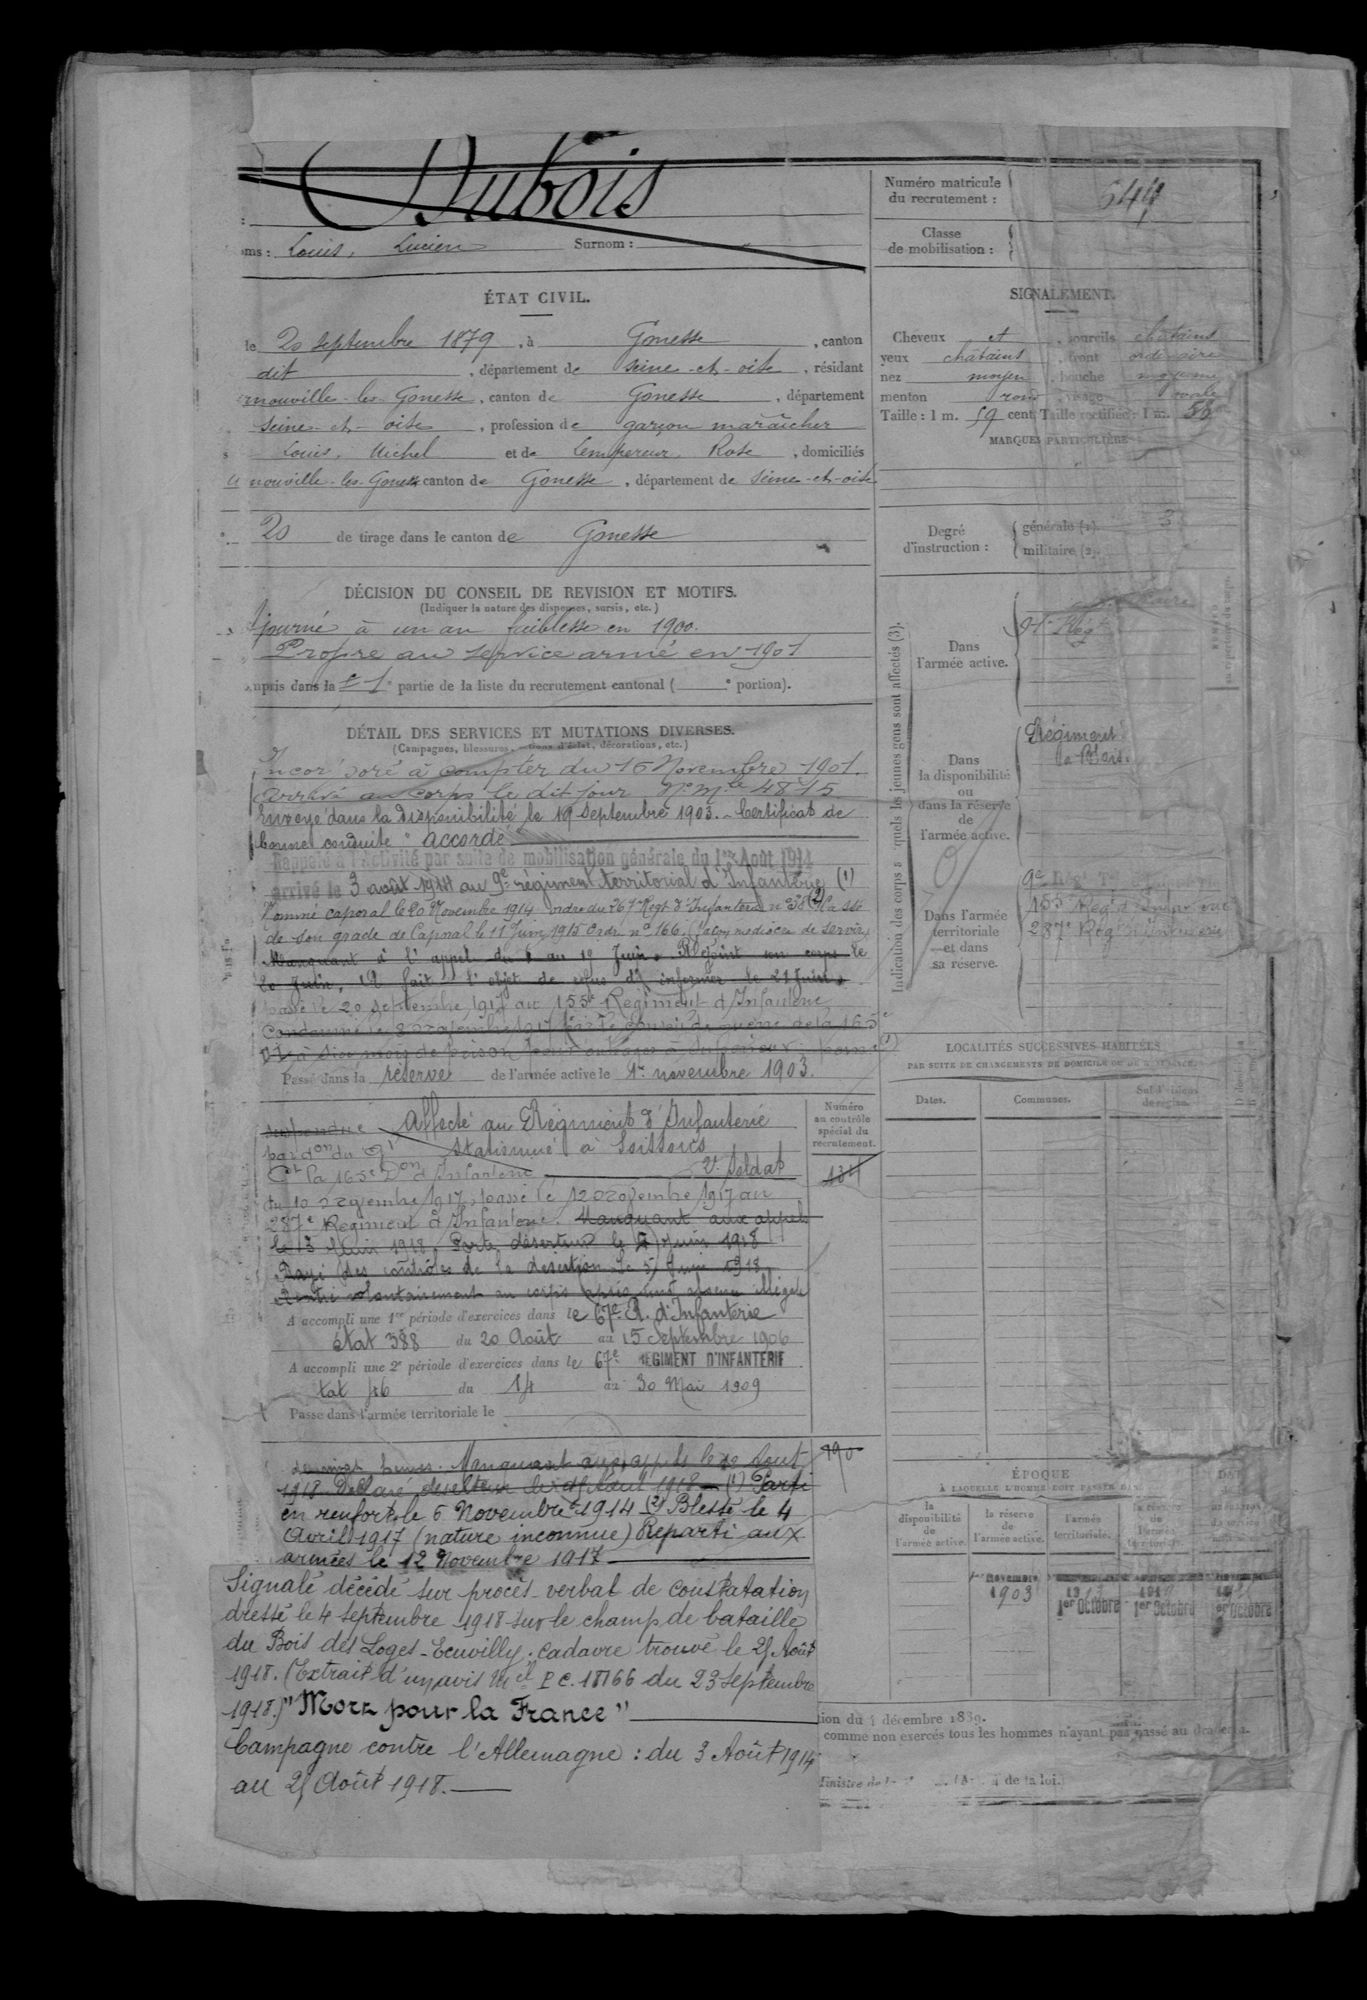 Dubois
Numéro matricule
du recrutement :
644
oms : Louis, Lucien Surnom :
Classe
de mobilisation :
ÉTAT CIVIL.
le 20 septembre 1879, à Gonesse, canton
dit, département de Seine-et-oise, résidant
nouville-les-Gonesse, canton de Gonesse, département
Seine-et-oise, profession de garçon maraîcher
s Louis, Michel et de Lempereur, Rose, domiciliés
nouville-les-Gonesse canton de Gonesse, département de Seine-et-oise
20 de tirage dans le canton de Gonesse
SIGNALEMENT.
Cheveux et, sourcils châtains
yeux châtains, front ordinaire
nez moyen, bouche moyenne
menton rond, visage ovale
Taille : 1 m. 59 cent. Taille rectifiée : 1 m.
MARQUES PARTICULIÈRES
Degré
d'instruction :
générale (1). 3
militaire (2).
DÉCISION DU CONSEIL DE REVISION ET MOTIFS.
(Indiquer la nature des dispenses, sursis, etc.)
journé à un an faiblesse en 1900.
Propre au service armé en 1901
mpris dans la 1e partie de la liste du recrutement cantonal ( e portion).
DÉTAIL DES SERVICES ET MUTATIONS DIVERSES.
(Campagnes, blessures, actions d'éclat, décorations, etc.)
Incorporé à compter du 16 Novembre 1901.
Arrivé au corps le dit jour N° Mle 4815
Envoyé dans la disponibilité le 19 Septembre 1903. - Certificat de
bonne conduite " accordé
Rappelé à l'activité par suite de mobilisation générale du 1er Août 1914
arrivé le 3 août 1914 au 9e régiment territorial d'Infanterie (1)
Nommé caporal le 20 Novembre 1914 ordre du 267e Regt d'Infanterie n° 238 (2) Cassé
de son grade de Caporal le 11 Juin 1915 Ordre n° 166. (façon médiocre de servir)
Manquant à l'appel du au 19 Juin. Rejoint son corps le
20 Juin. A fait l'objet de refus d'informer le 21 Juin
passé le 20 septembre 1917 au 155e Régiment d'Infanterie
Condamné le 8 novembre 1917 par le Conseil de guerre de la 165e
DI à six mois de prison pour outrages à supérieur. peine
Passé dans la réserve de l'armée active le 1er novembre 1903.
Indication des corps auxquels les jeunes gens sont affectés (3).
Dans
l'armée active.
Dans
la disponibilité
ou
dans la réserve
de
l'armée active.
Régiment
Dans l'armée
territoriale
et dans
sa réserve.
155e Régt d'Infanterie
287e Régt d'Infanterie
LOCALITÉS SUCCESSIVES HABITÉES
PAR SUITE DE CHANGEMENTS DE DOMICILE OU DE RÉSIDENCE.
Dates.
Communes.
Subdivisions
de région.
Numéro
au contrôle
spécial du
recrutement.
suspendue
Affecté au Régiment d'Infanterie
par don du Gl
stationné à Soissons
Ct la 165e Don d'Infanterie
2e Soldat
du 10 novembre 1917, passé le 12 novembre 1917 au
287e Régiment d'Infanterie. Manquant aux appels
le 3 Juin 1918. Porté déserteur le Juin 1918
Rayé des contrôles de la désertion le 5 Juin 1918.
Rentré volontairement au corps après une absence illégale
A accompli une 1re période d'exercices dans le 67e R. d'Infanterie
état 388 du 20 Août au 15 Septembre 1906
A accompli une 2e période d'exercices dans le 67e REGIMENT D'INFANTERIE
du 14 au 30 Mai 1909
Passé dans l'armée territoriale le
190
heures. Manquant aux appels le Aout
1918. Déclaré déserteur le Août 1918 - (1) Parti
en renfort le 5 Novembre 1914 (2) Blessé le 4
Avril 1917 (nature inconnue) Reparti aux
armées le 12 Novembre 1917
Signalé décédé sur procès-verbal de constatation
dressé le 4 septembre 1918 sur le champ de bataille
du Bois des Loges - Ecuvilly. cadavre trouvé le 25 Août
1918. (Extrait d'un avis Mel P C. 18166 du 23 Septembre
1918.) "Mort pour la France"
Campagne contre l'Allemagne : du 3 Août 1914
au 25 Août 1918.
ÉPOQUE
À LAQUELLE L'HOMME DOIT PASSER DANS
la
disponibilité
de
l'armée active.
la réserve
de
l'armée active.
l'armée
territoriale.
la réserve
de
l'armée
territoriale.
1er novembre
1903
1913
1er Octobre
1919
1er Octobre
1er Octobre
tion du 4 décembre 1889.
comme non exercés tous les hommes n'ayant pas passé au drapeau.
de la loi.